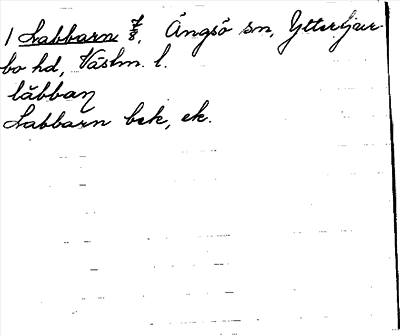 1 Labbarn 7/8, Ängsö sn, Yttertjur-
bo hd, Västm. l.
låbbaɳ
Labbarn bek, ek.